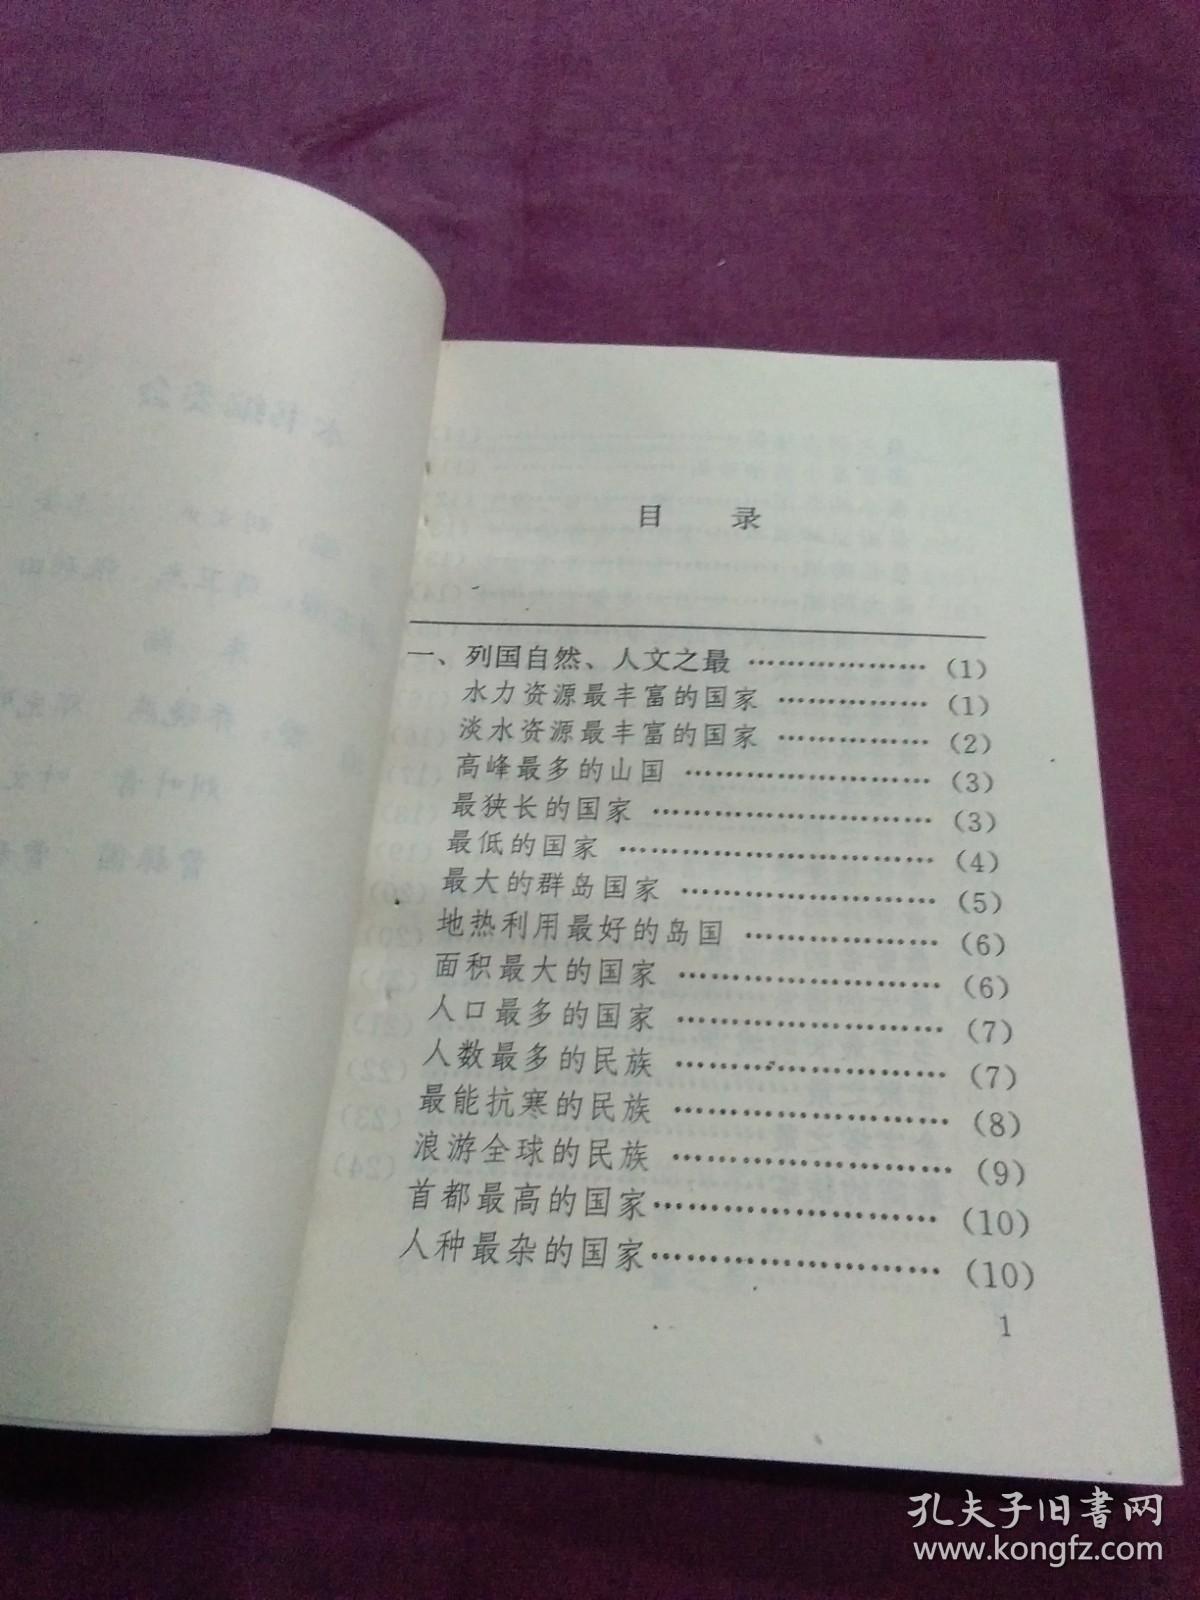 目 录
一、列国自然、人文之最 ………………… (1)
水力资源最丰富的国家 ……………… (1)
淡水资源最丰富的国家 ……………… (2)
高峰最多的山国 ……………………… (3)
最狭长的国家 ………………………… (3)
最低的国家 …………………………… (4)
最大的群岛国家 ……………………… (5)
地热利用最好的岛国 ………………… (6)
面积最大的国家 ……………………… (6)
人口最多的国家 ……………………… (7)
人数最多的民族 ……………………… (7)
最能抗寒的民族 ……………………… (8)
浪游全球的民族 ……………………… (9)
首都最高的国家……………………… (10)
人种最杂的国家……………………… (10)
1
孔夫子旧书网
www.kongfz.com